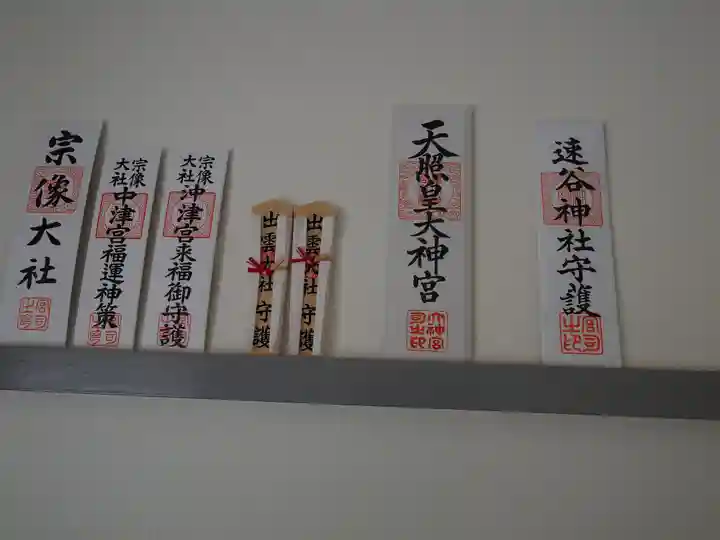 宗像大社
宗像大社
中津宮福運神策
宗像大社
沖津宮来福御守護
出雲大社守護
出雲大社守護
天照皇大神宮
速谷神社守護
宮司之印